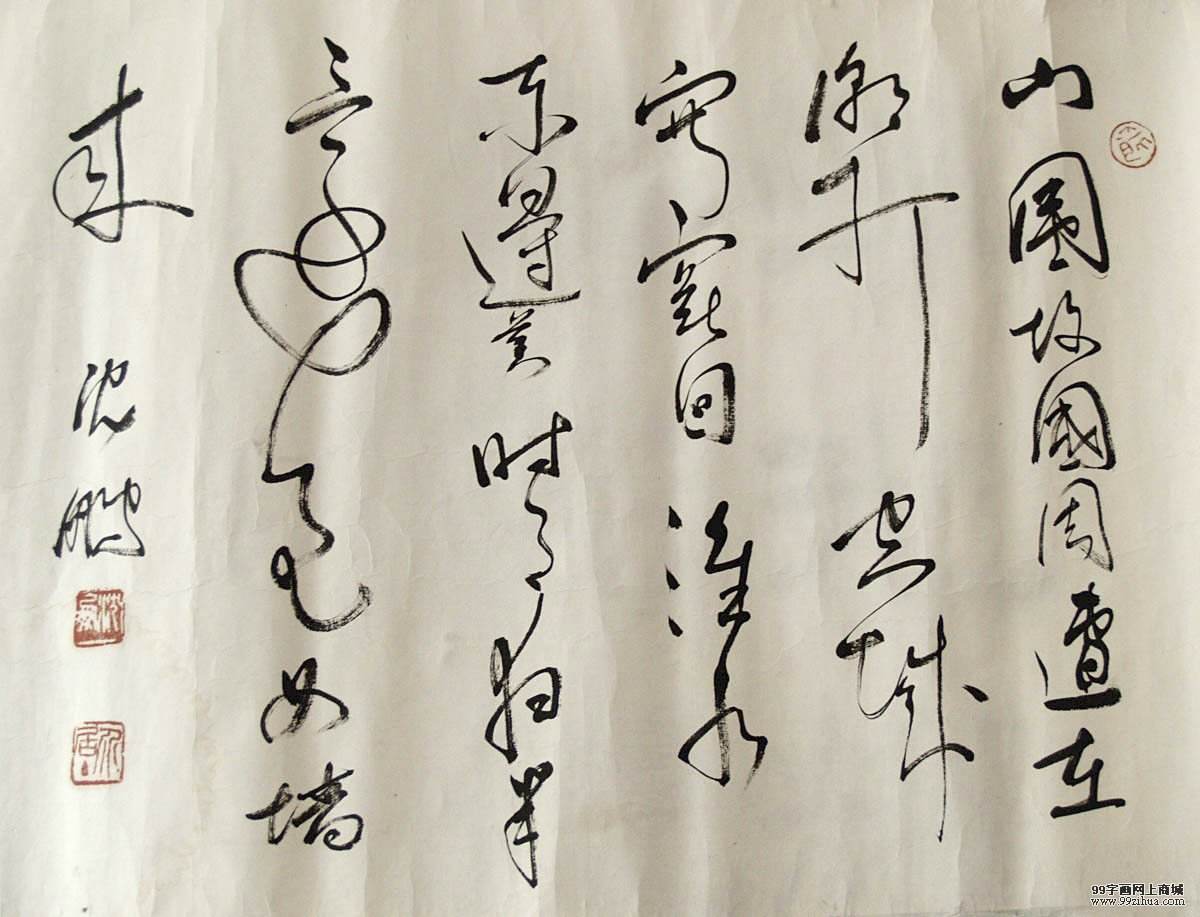 山圍故國周遭在
潮打空城
寂寞回淮水
东邊舊时月夜深
還過女墙
来 沈鹏
99字画网上商城
www.99zihua.com